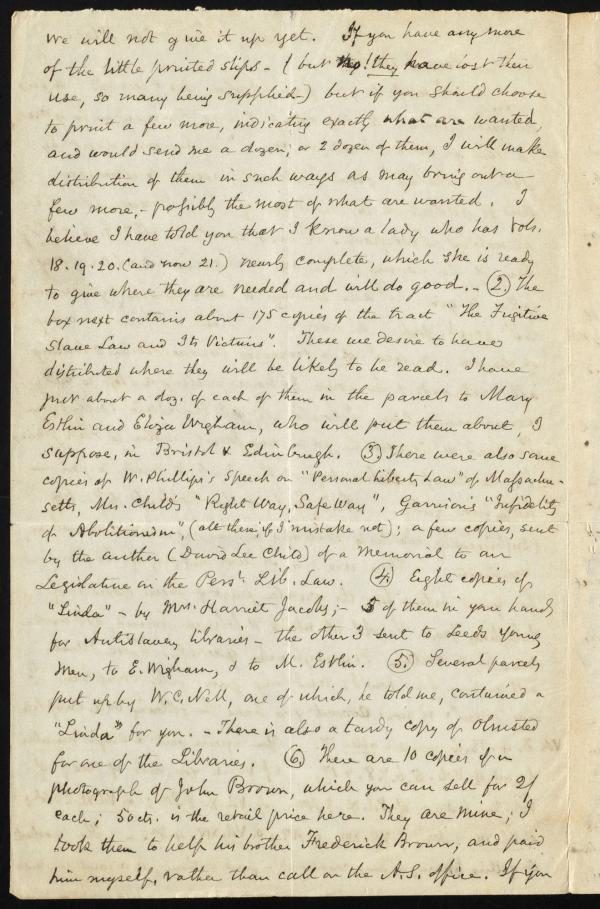 we will not give it up yet. If you have any more
of the little printed slips - (but they have lost their
use, so many being supplied -) but if you should choose
to print a few more, indicating exactly what are wanted,
and would send me a dozen, or 2 dozen of them, I will make
distribution of them in such ways as may bring out a
few more, - possibly the most of what are wanted. I
believe I have told you that I know a lady who has Vols.
18. 19. 20. (and now 21.) nearly complete, which she is ready
to give where they are needed and will do good. - (2.) The
box next contains about 175 copies of the tract "The Fugitive
Slave Law and Its Victims". These we desire to have
distributed where they will be likely to be read. I have
put about a doz. of each of them in the parcels to Mary
Estlin and Eliza Wigham, who will put them about, I
suppose, in Bristol & Edinburgh. (3.) There were also some
copies of W. Phillips's Speech on "Personal Liberty Law" of Massachu-
setts, Mrs. Child's "Right Way, Safe Way", Garrison's "Infidelity
of Abolitionism", (all these if I mistake not); a few copies, sent
by the author (David Lee Child) of a Memorial to our
Legislature on the Persl. Lib. Law. (4.) Eight copies of
"Linda" - by Mrs. Harriet Jacobs; - 5 of them in your hands
for Antislavery Libraries - the other 3 sent to Leeds Young
Men, to E. Wigham, & to M. Estlin. (5.) Several parcels
put up by W. C. Nell, one of which, he told me, contained a
"Linda" for you. - There is also a tardy copy of Olmsted
for one of the Libraries. (6.) There are 10 copies of a
photograph of John Brown, which you can sell for 2/
each; 50 cts. is the retail price here. They are mine; I
took them to help his brother Frederick Brown, and paid
him myself, rather than call on the A.S. office. If you